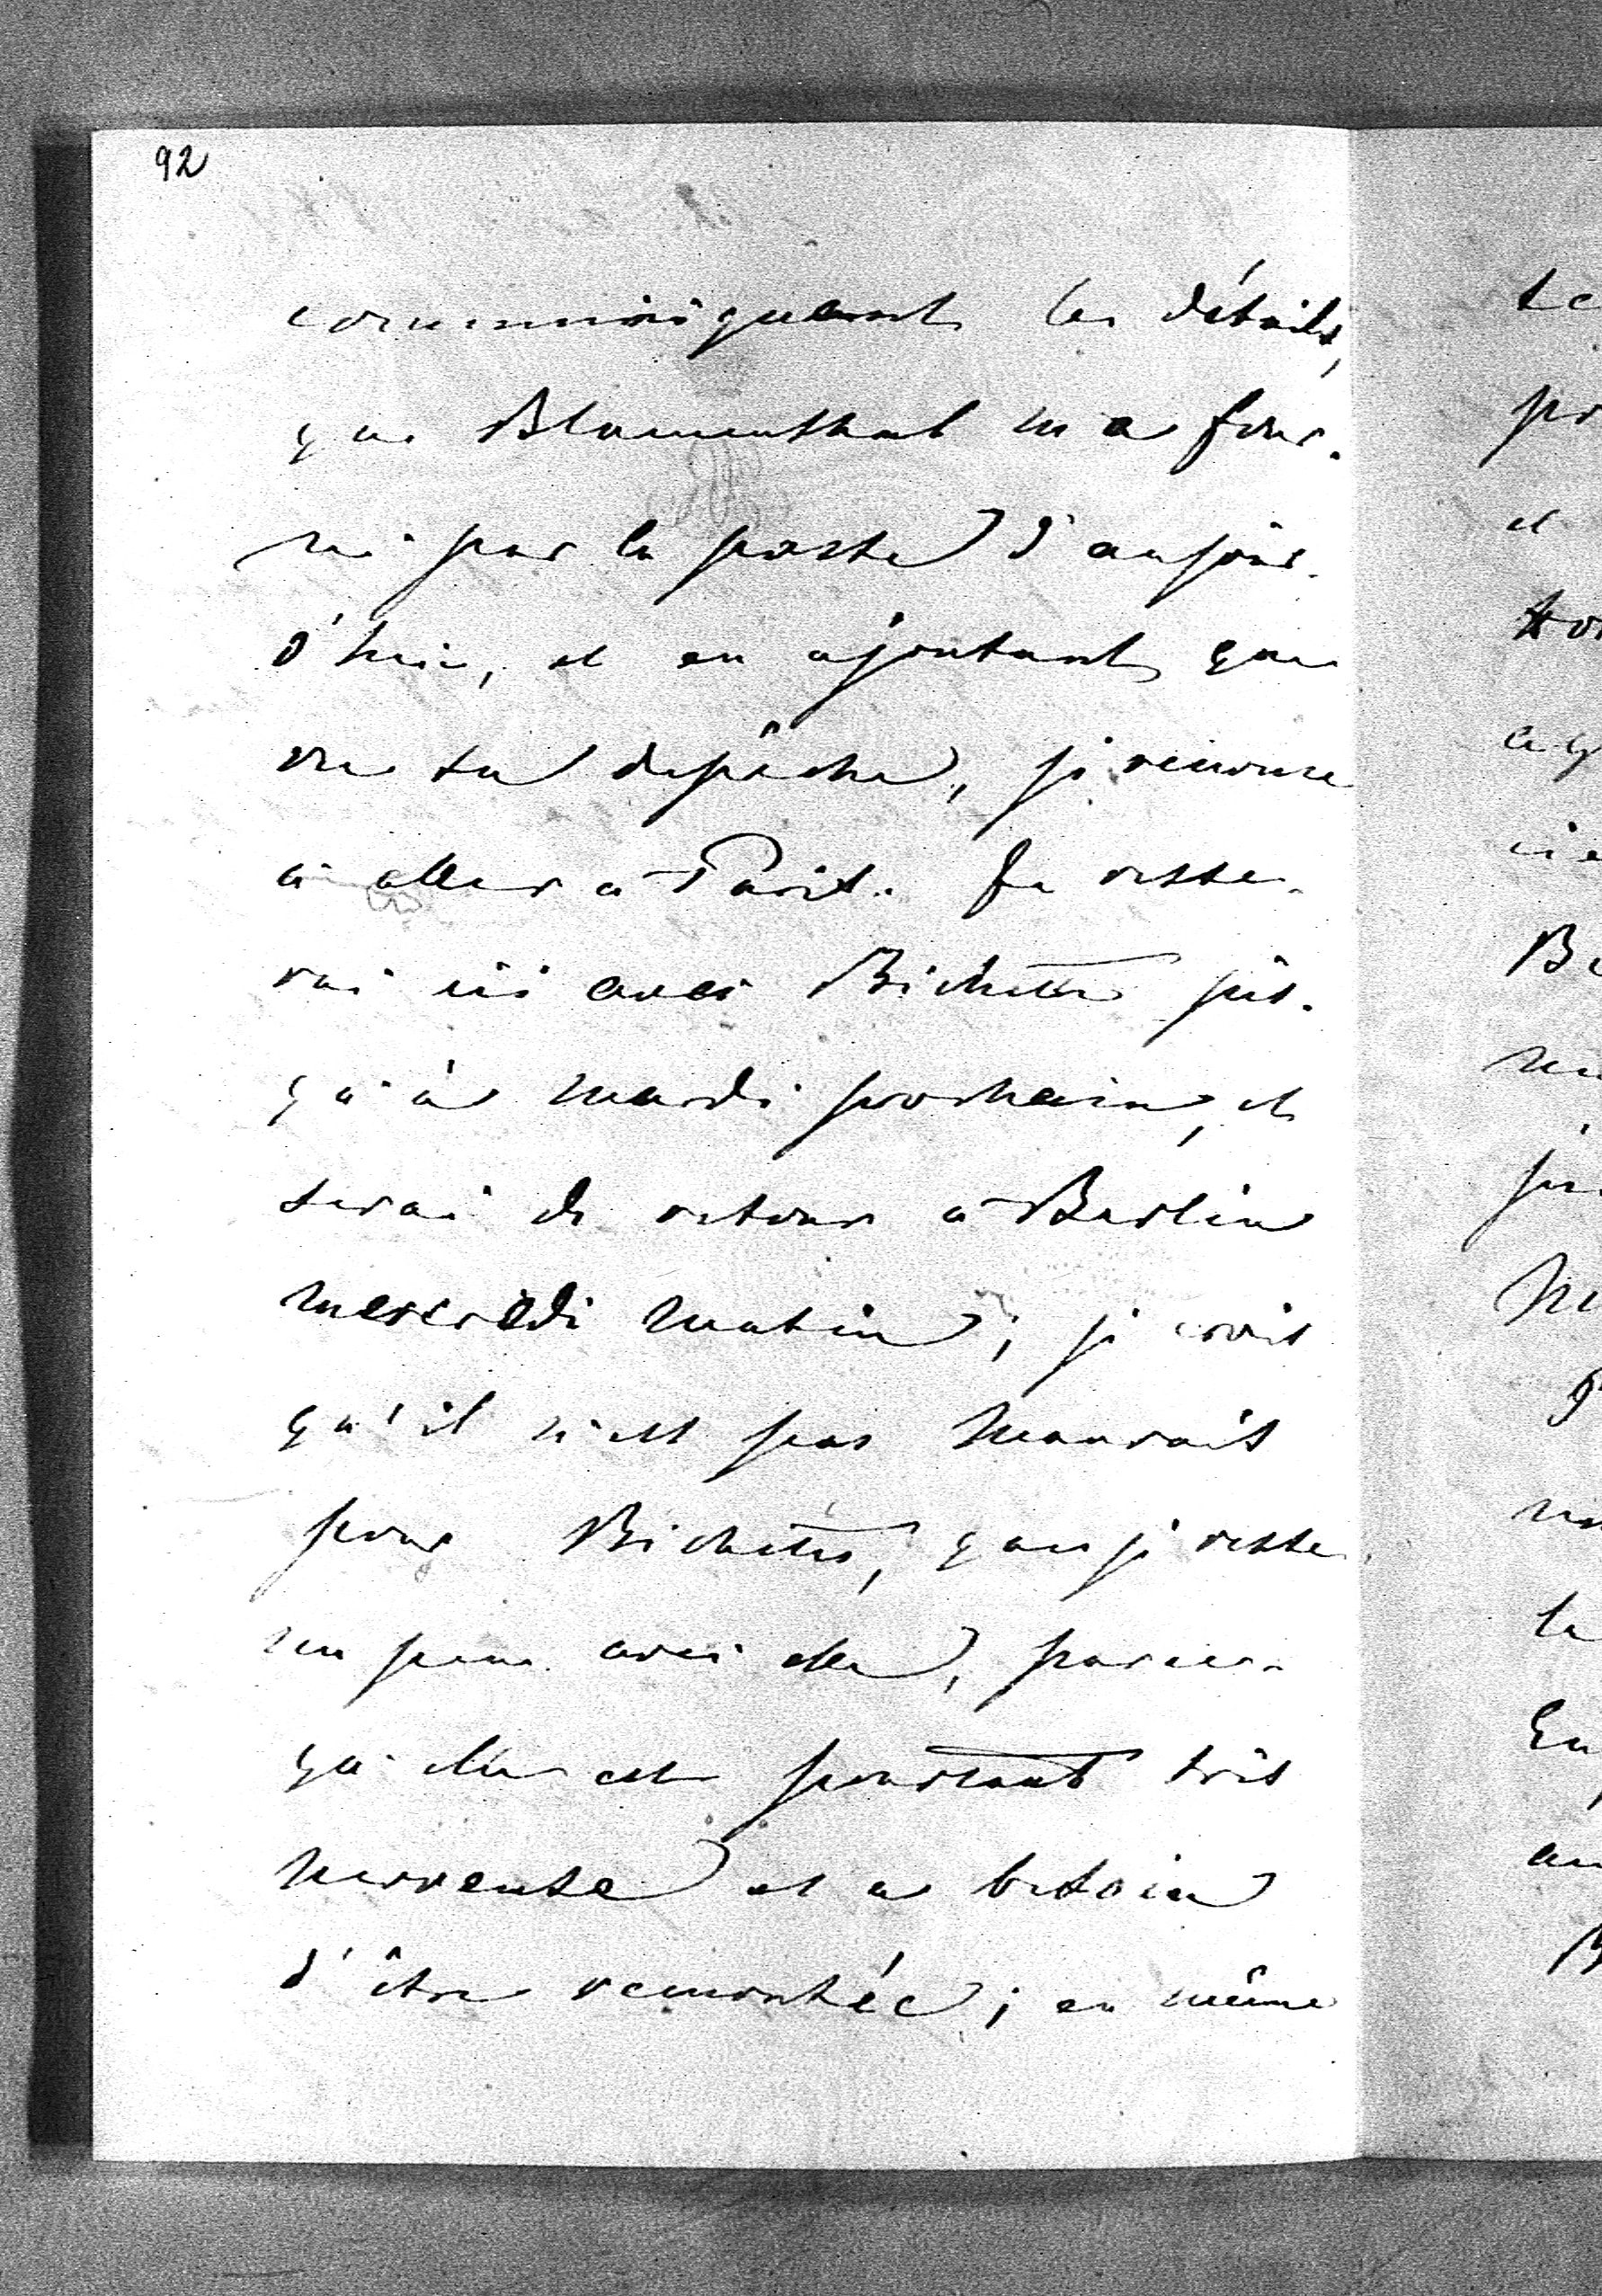 92
communiquant les détails,
que Blumenthal m'a four-
ni par la poste d'aujour-
d'hui, et en ajoutant que
vu ta depêche, je renonce
à aller à Paris. Je reste-
rai ici avec Bichette jus-
qu'à mardi prochain, et
serai de retour à Berlin
mercredi matin; je crois
qu'il n'est pas mauvais
pour Bichette, que je reste
un peu avec elle, parce-
qu'elle est pourtant très
nerveuse et a besoin
d'être remontée; en même